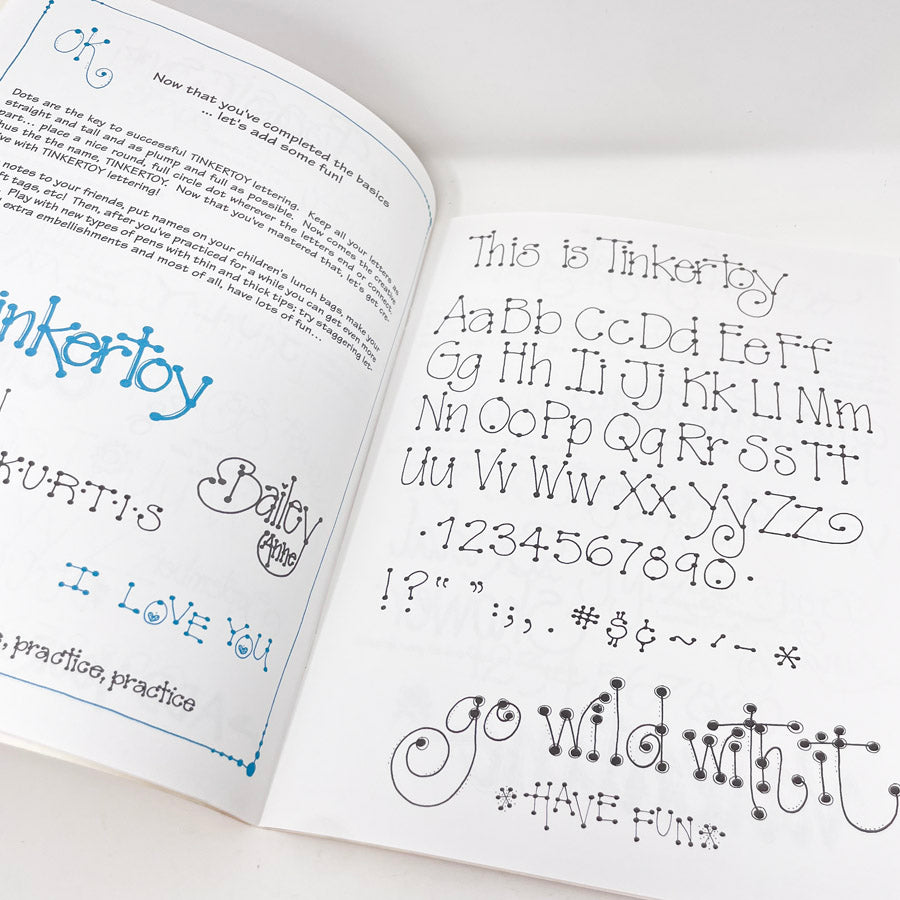 OK
Now that you've completed the basics
... let's add some fun!
Dots are the key to successful TINKERTOY lettering. Keep all your letters as
straight and tall and as plump and full as possible. Now comes the creative
part... place a nice round, full circle dot wherever the letters end or connect,
thus the the name, TINKERTOY. Now that you've mastered that, let's get cre-
ative with TINKERTOY lettering!
notes to your friends, put names on your children's lunch bags, make your
tags, etc! Then, after you've practiced for a while you can get even more
Play with new types of pens with thin and thick tips; try staggering let-
extra embellishments and most of all, have lots of fun...
inkertoy
K·U·R·T·I·S
Bailey
Anne
I LOVE YOU
practice, practice
This is Tinkertoy
Aa Bb Cc Dd Ee Ff
Gg Hh Ii Jj Kk Ll Mm
Nn Oo Pp Qq Rr Ss Tt
Uu Vv Ww Xx Yy Zz
·1234567890·
!?“ ” : ; , . # $ ¢ ~ / – *
go wild with it
*HAVE FUN*